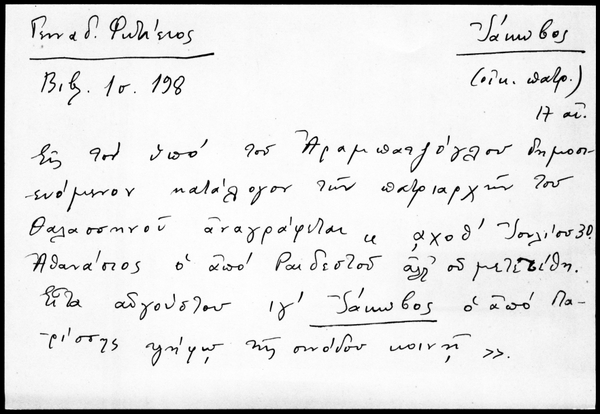 Γενναδ. Φωτίειος
Ἰάκωβος
Βιβ. 1σ. 198
(οἰκ. πατρ.)
17 αἰ.
Εἰς τὸν ὑπό τοῦ Ἀραμπατζόγλου δημοσι-
ευόμενον κατάλογον τῶν πατριαρχῶν τοῦ
Θαλασσηνοῦ ἀναγράφεται « ͵αχοθ' Ἰουλίου 30.
Ἀθανάσιος ὁ ἀπό Ραιδεστοῦ ἀλλ' οὐ μετετέθη.
Εἶτα αὐγούστου ιγ' Ἰάκωβος ὁ ἀπό Λα-
ρίσσης ψήφῳ τῆς συνόδου κοινῇ ».